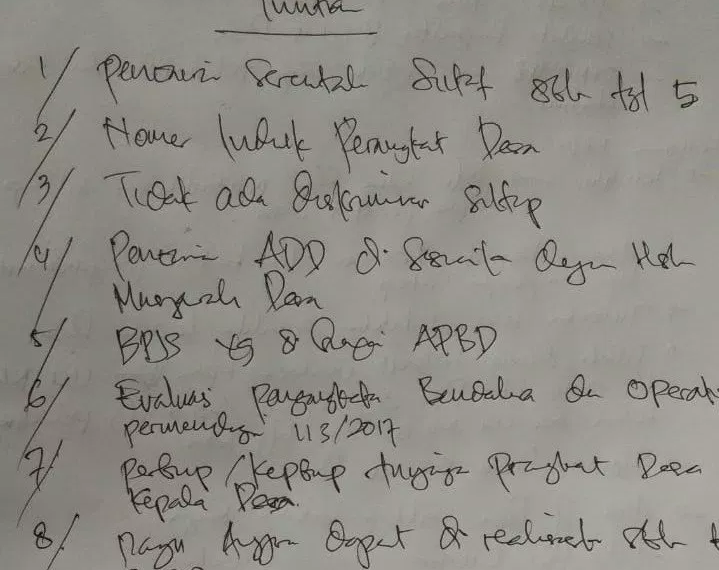 1/ Pencairan Serentak Siltap sblm tgl 5
2/ Nomer Induk Perangkat Desa
3/ Tidak ada diskriminasi siltap
4/ Pencairan ADD di sesuaikan dengan Hsl
Musyawarah Desa
5/ BPJS yg di biayai APBD
6/ Evaluasi pengangkatan Bendahara dan Operat
permendagri 113/2017
7/ perbup/kepbup tunjangan Perangkat Desa
Kepala Desa
8/ pagu Anggaran dapat di realisasi sblm